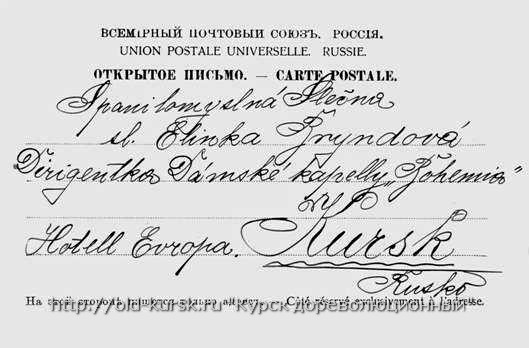 ВСЕМІРНЫЙ ПОЧТОВЫЙ СОЮЗЪ. РОССІЯ.
UNION POSTALE UNIVERSELLE. RUSSIE.
ОТКРЫТОЕ ПИСЬМО. — CARTE POSTALE.
Spanilomyslná Slečna
sl. Elinka Bryndová
Dirigentka Dámské kapelly „Bohemia"
Hotell Evropa. Kursk
Rusko
На этой сторонѣ пишется только адресъ. — Côté réservé exclusivement à l'adresse.
http://old-kursk.ru Курск дореволюционный